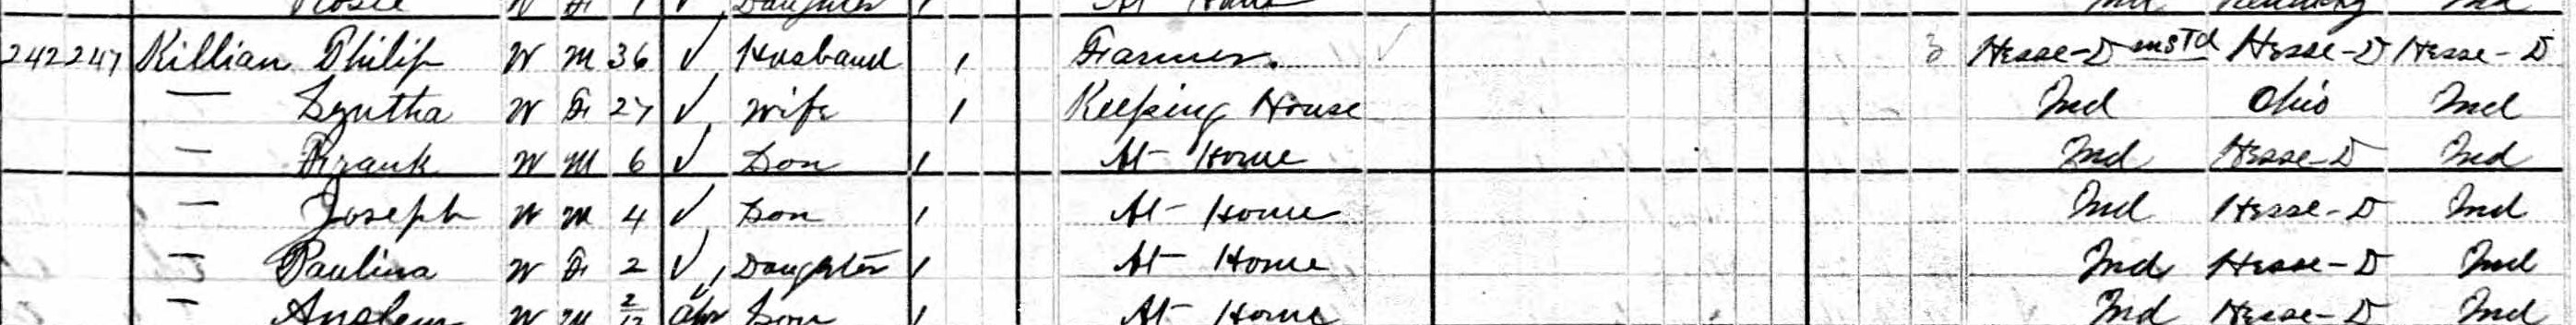 Rosie W F 1 Daughter At Home Ind Kentucky Ind
242 247 Killian Philip W M 36 Husband Farmer. Hesse-D Hesse-D Hesse-D
— Syntha W F 27 Wife Keeping House Ind Ohio Ind
— Frank W M 6 Son At Home Ind Hesse-D Ind
— Joseph W M 4 Son At Home Ind Hesse-D Ind
— Paulina W F 2 Daughter At Home Ind Hesse-D Ind
— W M 2/12 Apr Son At Home Ind Hesse-D Ind